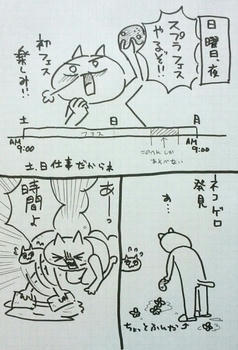 日曜日、夜
スプラフェス
やるぞ!!
初フェス
楽しみ!!
土
日
月
フェス
AM
9:00
AM
9:00
この時間しか
あそべない
土、日仕事だからね
ネコゲロ
発見
あ…
ちょっとふんだ
あーっ
時間よ